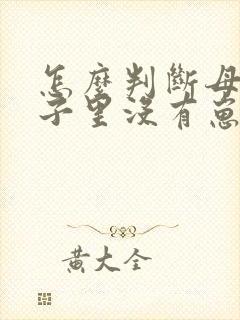 怎麼判斷母
子里沒有崽
黃大全